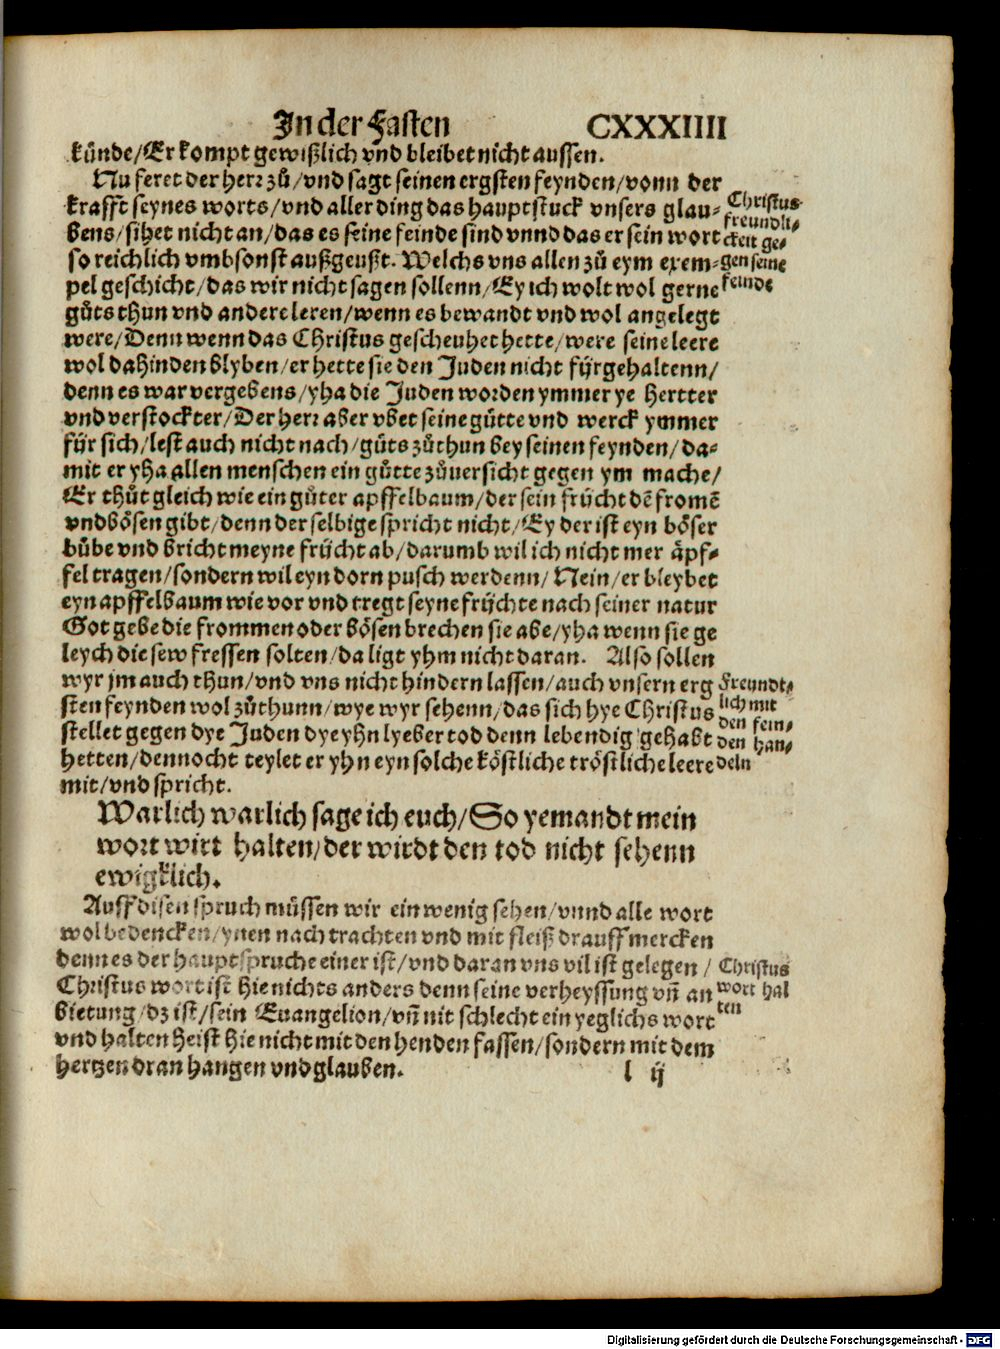 In der Fasten CXXXIIII
kůnde/Er kompt gewißlich vnd bleibet nicht aussen.
Nu feret der herr zů/vnd sagt seinen ergsten feynden/vonn der
krafft seynes worts/vnd aller ding das hauptstuck vnsers glau-
bens/sihet nicht an/das es seine feinde sind vnnd das er sein wort
so reichlich vmbsonst außgeußt. Welchs vns allen zů eym exem-
pel geschicht/das wir nicht sagen sollenn/Ey ich wolt wol gerne
gůts thun vnd andere leren/wenn es bewandt vnd wol angelegt
were/Denn wenn das Christus gescheuhet hette/were seine leere
wol dahinden blyben/er hette sie den Juden nicht fÿrgehaltenn/
denn es war vergebens/yha die Juden worden ymmer ye hertter
vnd verstockter/Der herr aber vbet seine gůtte vnd werck ymmer
fÿr sich/lest auch nicht nach/gůts zůthun bey seinen feynden/da-
mit er yha allen menschen ein gůtte zůuersicht gegen ym mache/
Er thůt gleich wie ein gůter apffelbaum/der sein frůcht dē fromē
vnd bösen gibt/denn der selbige spricht nicht/Ey der ist eyn böser
bůbe vnd bricht meyne frÿcht ab/darumb wil ich nicht mer äpf-
fel tragen/sondern wil eyn dorn pusch werdenn/Nein/er bleybet
eyn apffelbaum wie vor vnd tregt seyne frÿchte nach seiner natur
Got gebe die frommen oder bösen brechen sie abe/yha wenn sie ge
leych die sew fressen solten/da ligt yhm nicht daran. Also sollen
wyr jm auch thun/vnd vns nicht hindern lassen/auch vnsern erg
sten feynden wol zůthunn/wye wyr sehenn/das sich hye Christus
stellet gegen dye Juden dye yhn lyeber tod denn lebendig gehabt
hetten/dennocht teylet er yhn eyn solche köstliche tröstliche leere
mit/vnd spricht.
Warlich warlich sage ich euch/So yemandt mein
wort wirt halten/der wirdt den tod nicht sehenn
ewigklich.
Auff disen spruch müssen wir ein wenig sehen/vnnd alle wort
wol bedencken/ynen nach trachten vnd mit fleiß drauff mercken
denn es der hauptspruche einer ist/vnd daran vns vil ist gelegen/
Christus wort ist hie nichts anders denn seine verheyssung vn̄ an
bietung/dz ist/sein Euangelion/vn̄ nit schlecht ein yeglichs wort
vnd halten heist hie nicht mit den henden fassen/sondern mit dem
hertzen dran hangen vnd glauben.
l ij
Christus
freundli-
ckeit ge-
gen seine
feinde
Freundt-
lich mit
den fein-
den han-
deln
Christus
wort hal
ten
Digitalisierung gefördert durch die Deutsche Forschungsgemeinschaft - DFG